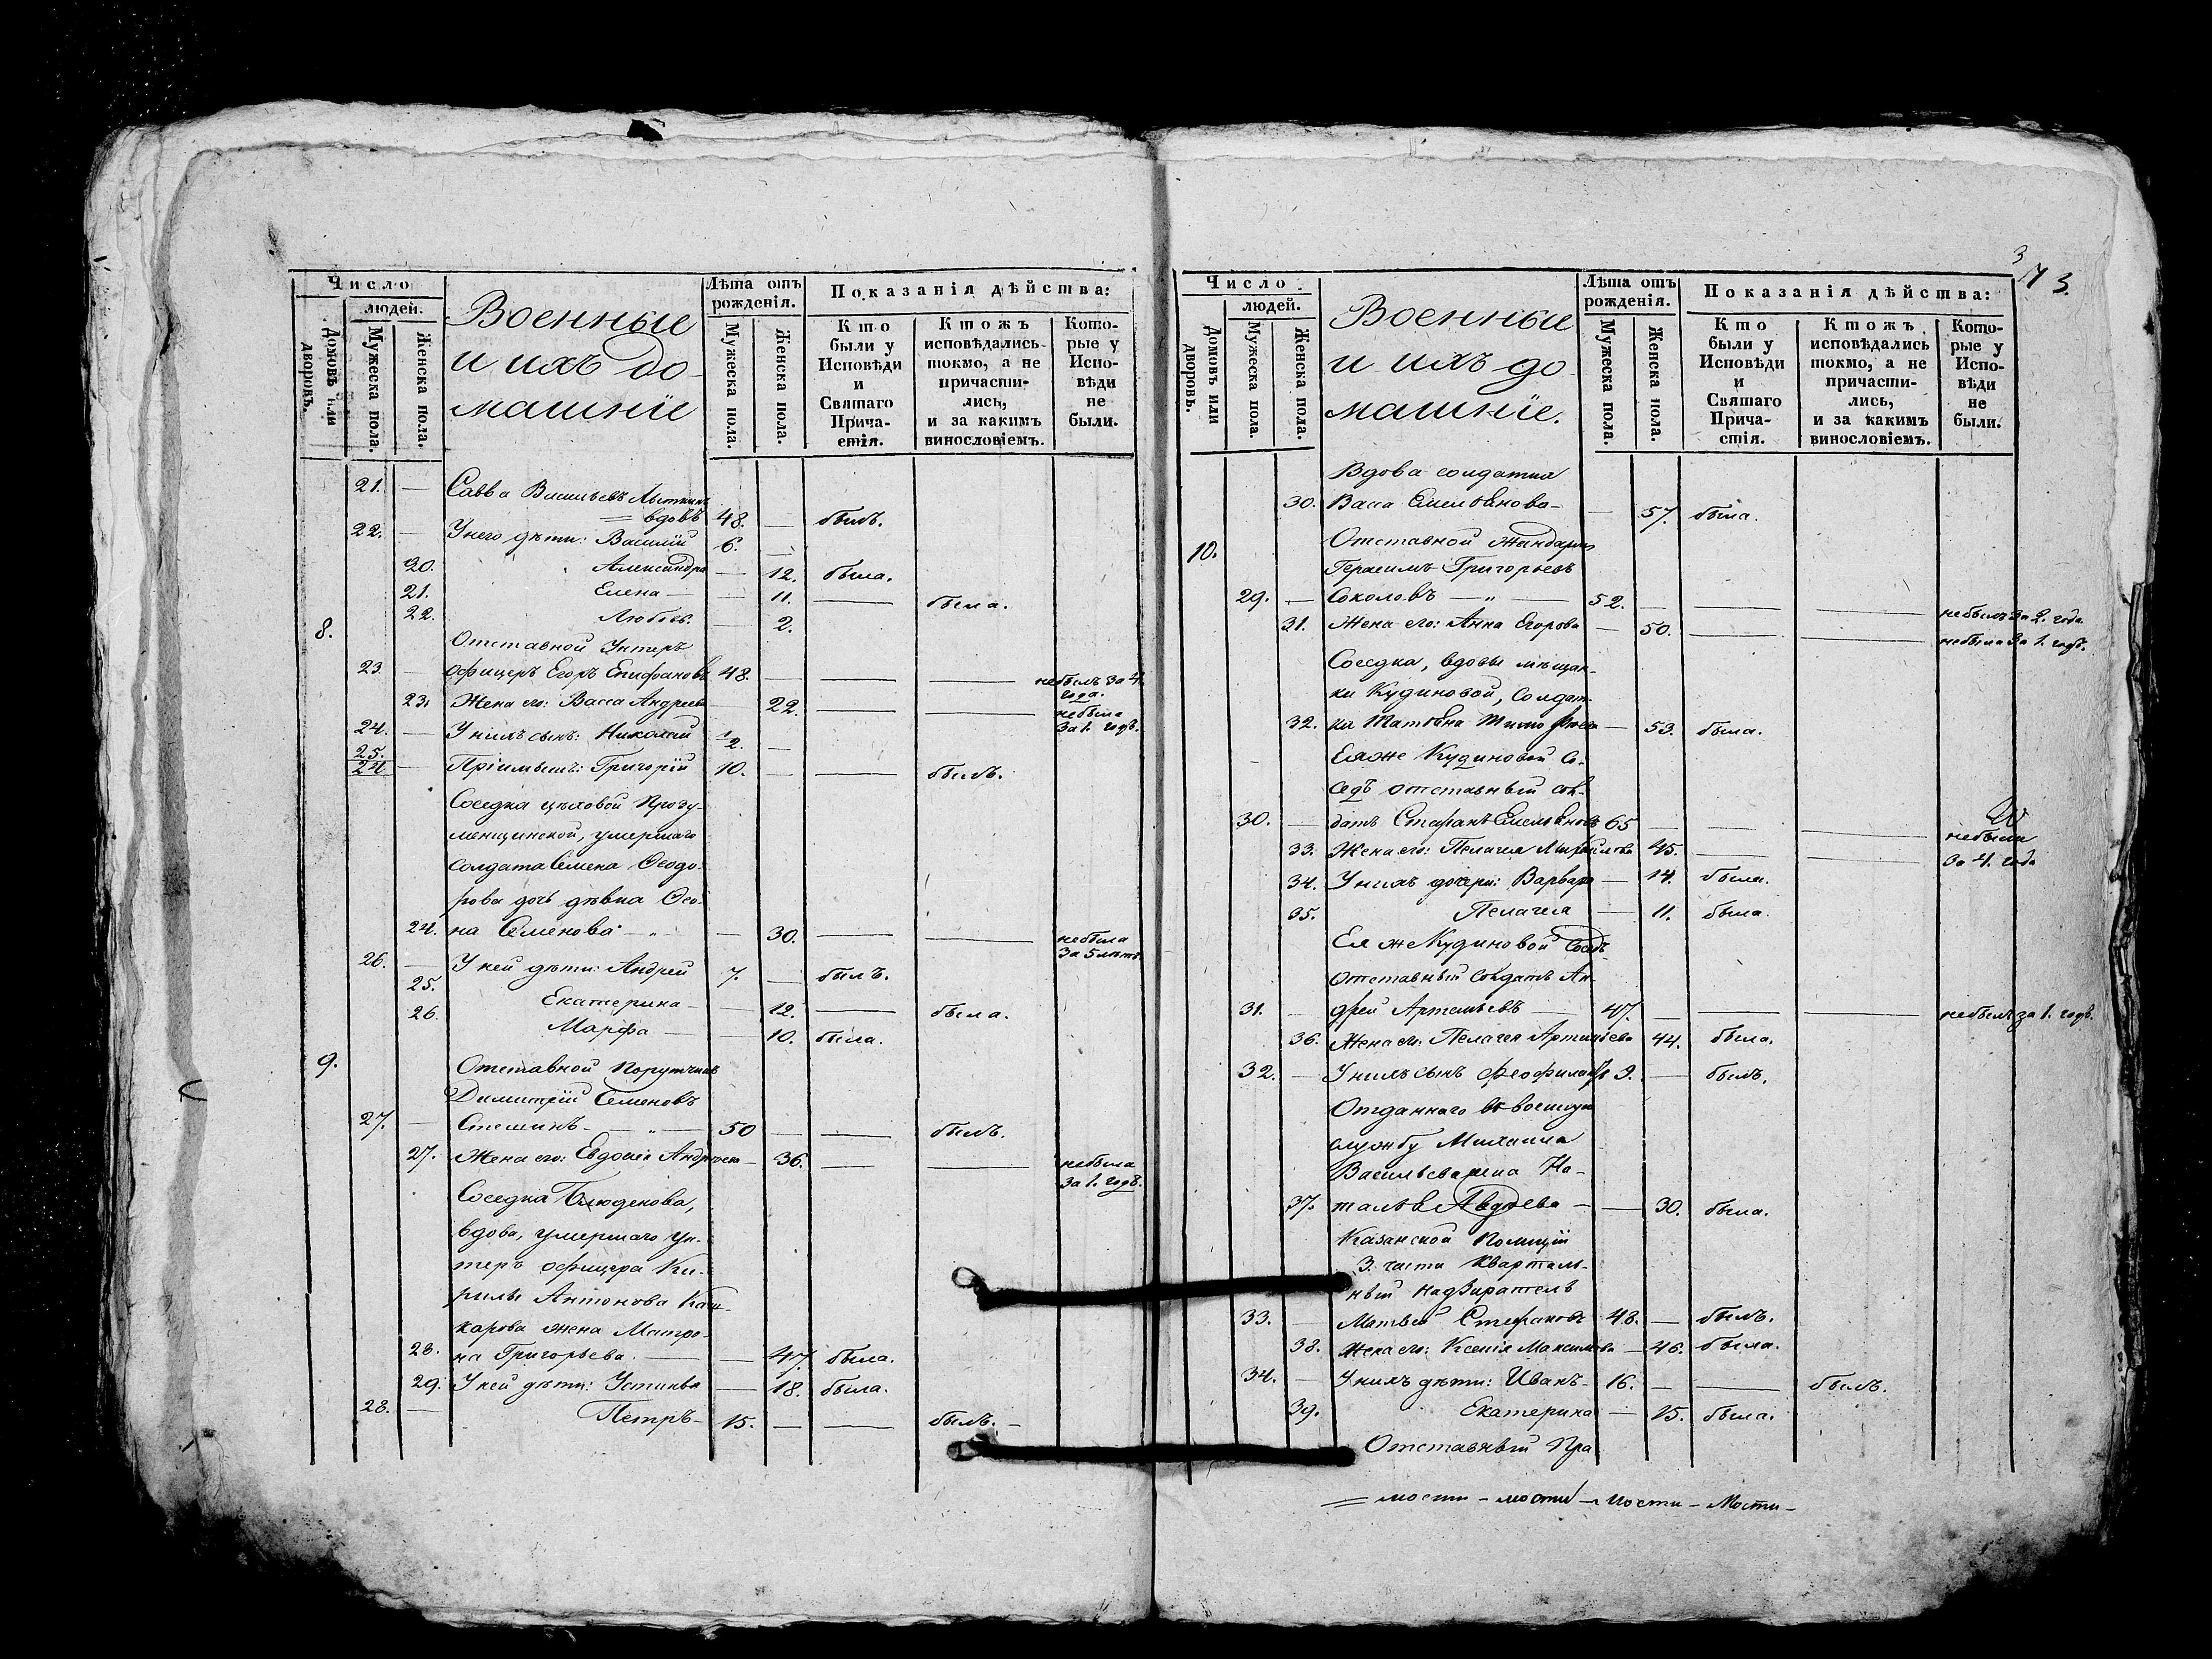 Число
людей.
Домовъ или дворовъ.
Мужеска пола.
Женска пола.
Военные
и ихъ до-
машніе
Лѣта отъ
рожденія.
Мужеска пола.
Женска пола.
Показанія дѣйства:
Кто
были у
Исповѣди
и
Святаго
Прича-
стія.
Ктожъ
исповѣдались
токмо, а не
причасти-
лись,
и за какимъ
винословіемъ.
Кото-
рые у
Испо-
вѣди
не
были.
21. — Савва Васильевъ
вдовъ 48. — былъ.
22. — У него дѣти: Василій 6. —
20. Александра — 12. была.
21. Елена — 11. — была.
22. Любовь — 2.
8. Отставной Унтеръ
23 — офицеръ Егоръ Епифановъ 48. — — — небылъ за 4. года.
23. Жена его: Васса Андреева — 22. — — небыла за 1. годъ.
24. — У нихъ сынъ: Николай 1/2. —
25. 24 — Пріимышъ: Григорій 10. — — былъ.
Соседка цѣховой Прозу-
менщинской, умершаго
солдата Семена Ѳеодо-
рова дочь дѣвка
24. на Семенова — " — 30. — — небыла за 5 лѣтъ.
26. — У ней дѣти: Андрей 7. — былъ.
25. Екатерина — 12. — была.
26. Марфа — 10. была.
9. Отставной Поручикъ
Димитрій Семеновъ
27. — Стешинъ — " — 50 — — былъ.
27. Жена его: Евдокія Андреева — 36. — — небыла за 1. годъ.
Соседка Блюденова,
вдова, умершаго Ун-
теръ офицера Ки-
рилы Антонова Каш-
карова жена Матро-
28. на Григорьева. — — 47. была.
29. У ней дѣти: Устинья — 18. была.
28. — Петръ — 15. — — былъ. —
3
173.
Число
людей.
Домовъ или дворовъ.
Мужеска пола.
Женска пола.
Военные
и ихъ до-
машніе.
Лѣта отъ
рожденія.
Мужеска пола.
Женска пола.
Показанія дѣйства:
Кто
были у
Исповѣди
и
Святаго
Прича-
стія.
Ктожъ
исповѣдались
токмо, а не
причасти-
лись,
и за какимъ
винословіемъ.
Кото-
рые у
Испо-
вѣди
не
были.
Вдова солдатка
30. Васса Емельянова — — 57. была.
10. Отставной Жандармъ
Герасимъ Григорьевъ
29. — Соколовъ — " — 52. — — — небылъ за 2. года.
31. Жена его: Анна Егорова — 50. — — небыла за 1. годъ.
Соседка, вдовы мѣщан-
ки Кудиновой, Солдат-
32. ка Татьяна Тимофѣева — 53. была.
Еяже Кудиновой Со-
седъ отставный сол-
30. — датъ Стефанъ Емельяновъ 65 — — — небыли
33. Жена его: Пелагея Михайлова 45. — — за 4. года
34. У нихъ дочери: Варвара — 14. была.
35. Пелагея — 11. была.
Ея же Кудиновой Соседъ
отставный Солдатъ Ан-
31. — дрей Артемьевъ — 47. — — — небылъ за 1. годъ.
36. Жена его: Пелагея Артемьева 44. была.
32. — У нихъ сынъ Феофилактъ 9. — былъ.
Отданнаго въ военную
службу Михаила
Васильева жена На-
37. талья Авдѣева — — 30. была.
Казанской Полиціи
3. части Кварталь-
ный Надзиратель
33. — Матвей Стефановъ 48. — былъ.
38. Жена его: Ксенія Максимова — 46. была.
34. — У нихъ дѣти: Иванъ — 16. — — былъ.
39. Екатерина — 15. была.
Отставный Пра-
= мости — мости — мости — Мости —